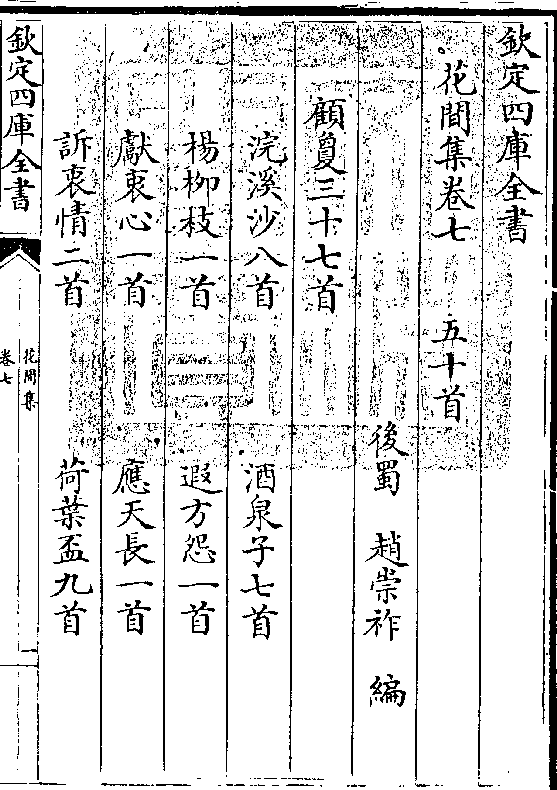 欽定四庫全書
花間集卷七　五十首
後蜀　趙崇祚　編
顧敻三十七首
浣溪沙八首　酒泉子七首
楊柳枝一首　遐方怨一首
獻衷心一首　應天長一首
訴衷情二首　荷葉盃九首
欽定四庫全書
花間集
卷七
一